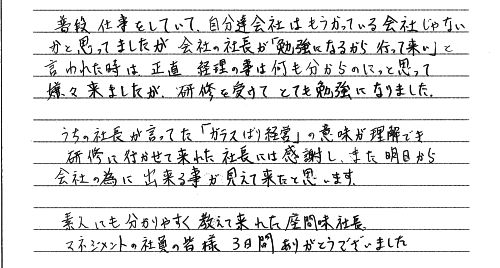 普段 仕事をしていて、自分達会社はもうかっている会社じゃない
かと思ってましたが 会社の社長が「勉強になるから 行って来い」と
言われた時は、正直 経理の事は何も分からのにっと思って
嫌々 来ましたが、研修を受けて とても勉強になりました。
うちの社長が言ってた「ガラスばり経営」の意味が理解でき
研修に行かせて来れた 社長には感謝し、また 明日から
会社の為に 出来る事が 見えて来たと思います。
素人にも分かりやすく 教えて来れた 座間味社長
マネジメントの社員の皆様 3日間 ありがとうでざいました